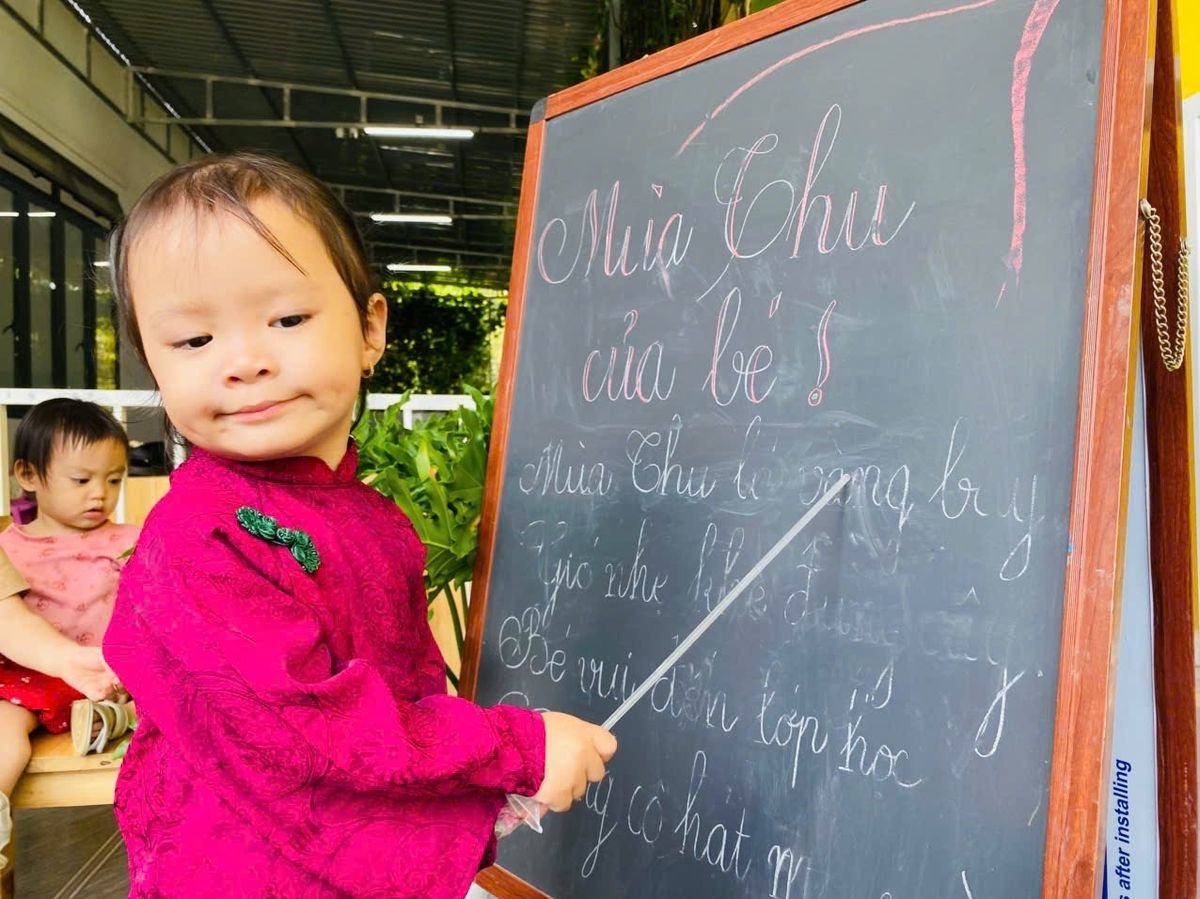 Mùa Thu
của bé !
Mùa Thu lá vàng bay
Gió nhẹ khẽ đung cây
Bé vui đến lớp học
cô hát
s after installing